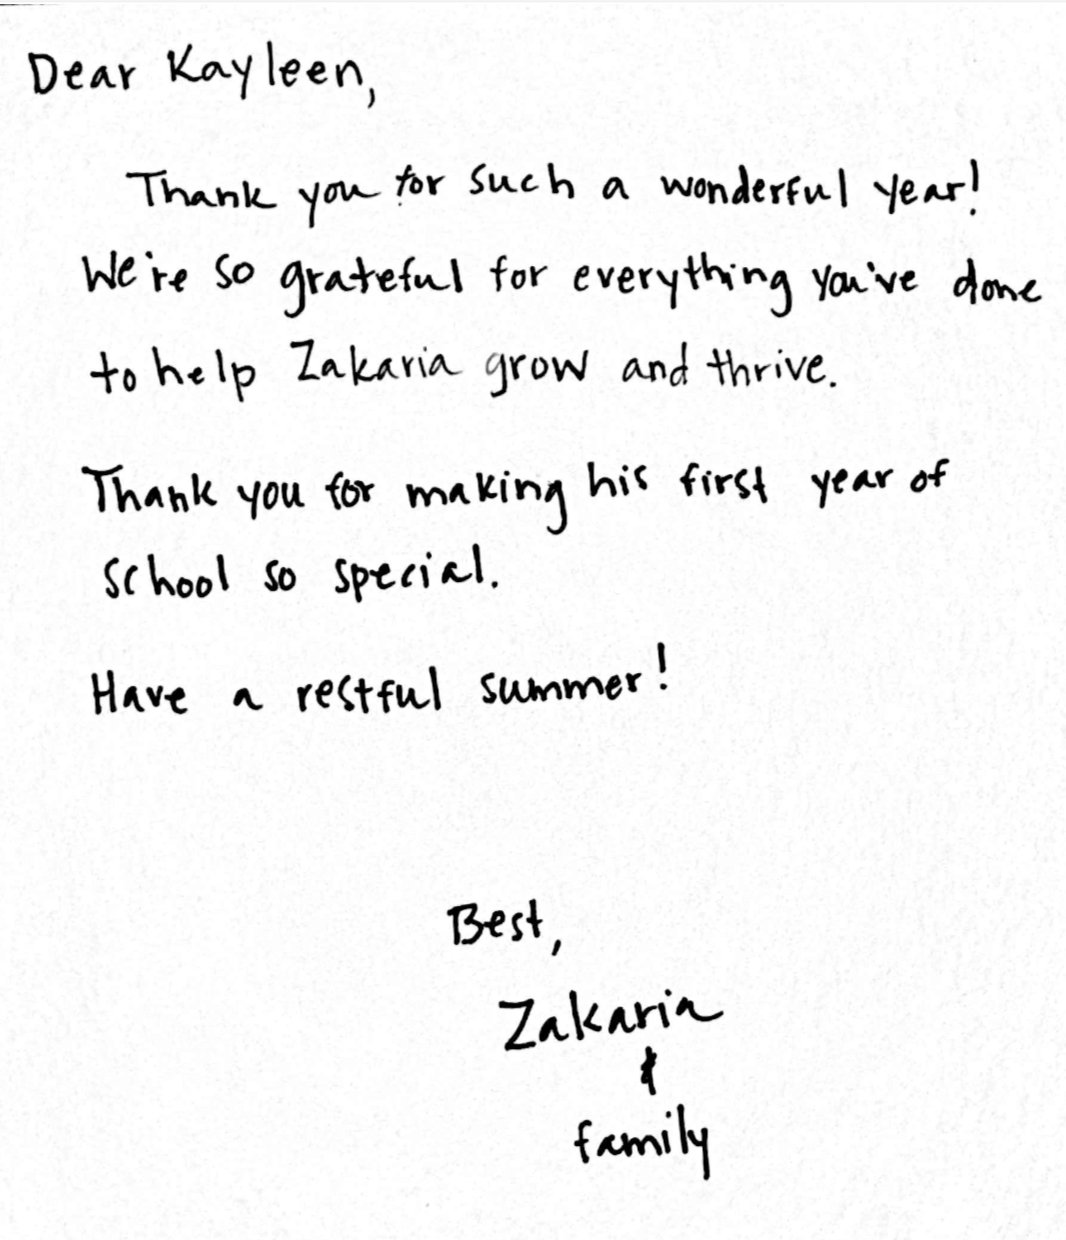 Dear Kayleen,
Thank you for such a wonderful year!
We're so grateful for everything you've done
to help Zakaria grow and thrive.
Thank you for making his first year of
school so special.
Have a restful summer!
Best,
Zakaria
&
family